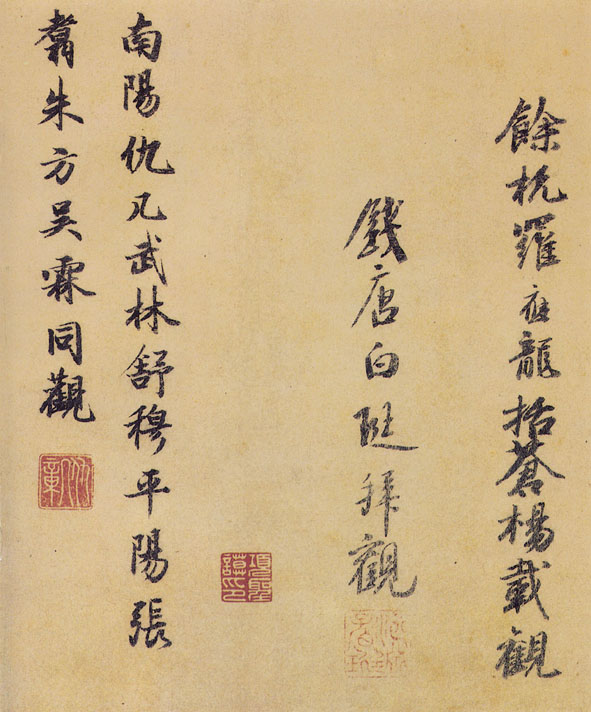 餘杭羅應龍括蒼楊載觀
錢唐白珽拜觀
南陽仇几武林舒穆平陽張
翥朱方吳霖同觀
項聖謨印